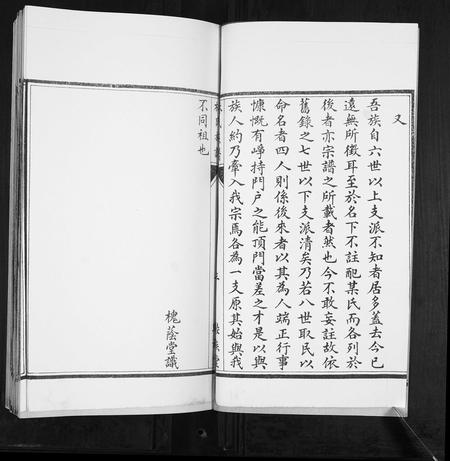 又
吾族自六世以上支派不知者居多蓋去今已
遠無所徵耳至於名下不註配某氏而各列於
後者亦宗譜之所載者然也今不敢妄註故依
舊錄之七世以下支派清矣乃若八世取民以
命名者四人則係後來者以其為人端正行事
慷慨有崢持門户之能頂門當差之才是以與
族人約乃牽入我宗焉各為一支原其始與我
不同祖也
槐蔭堂識